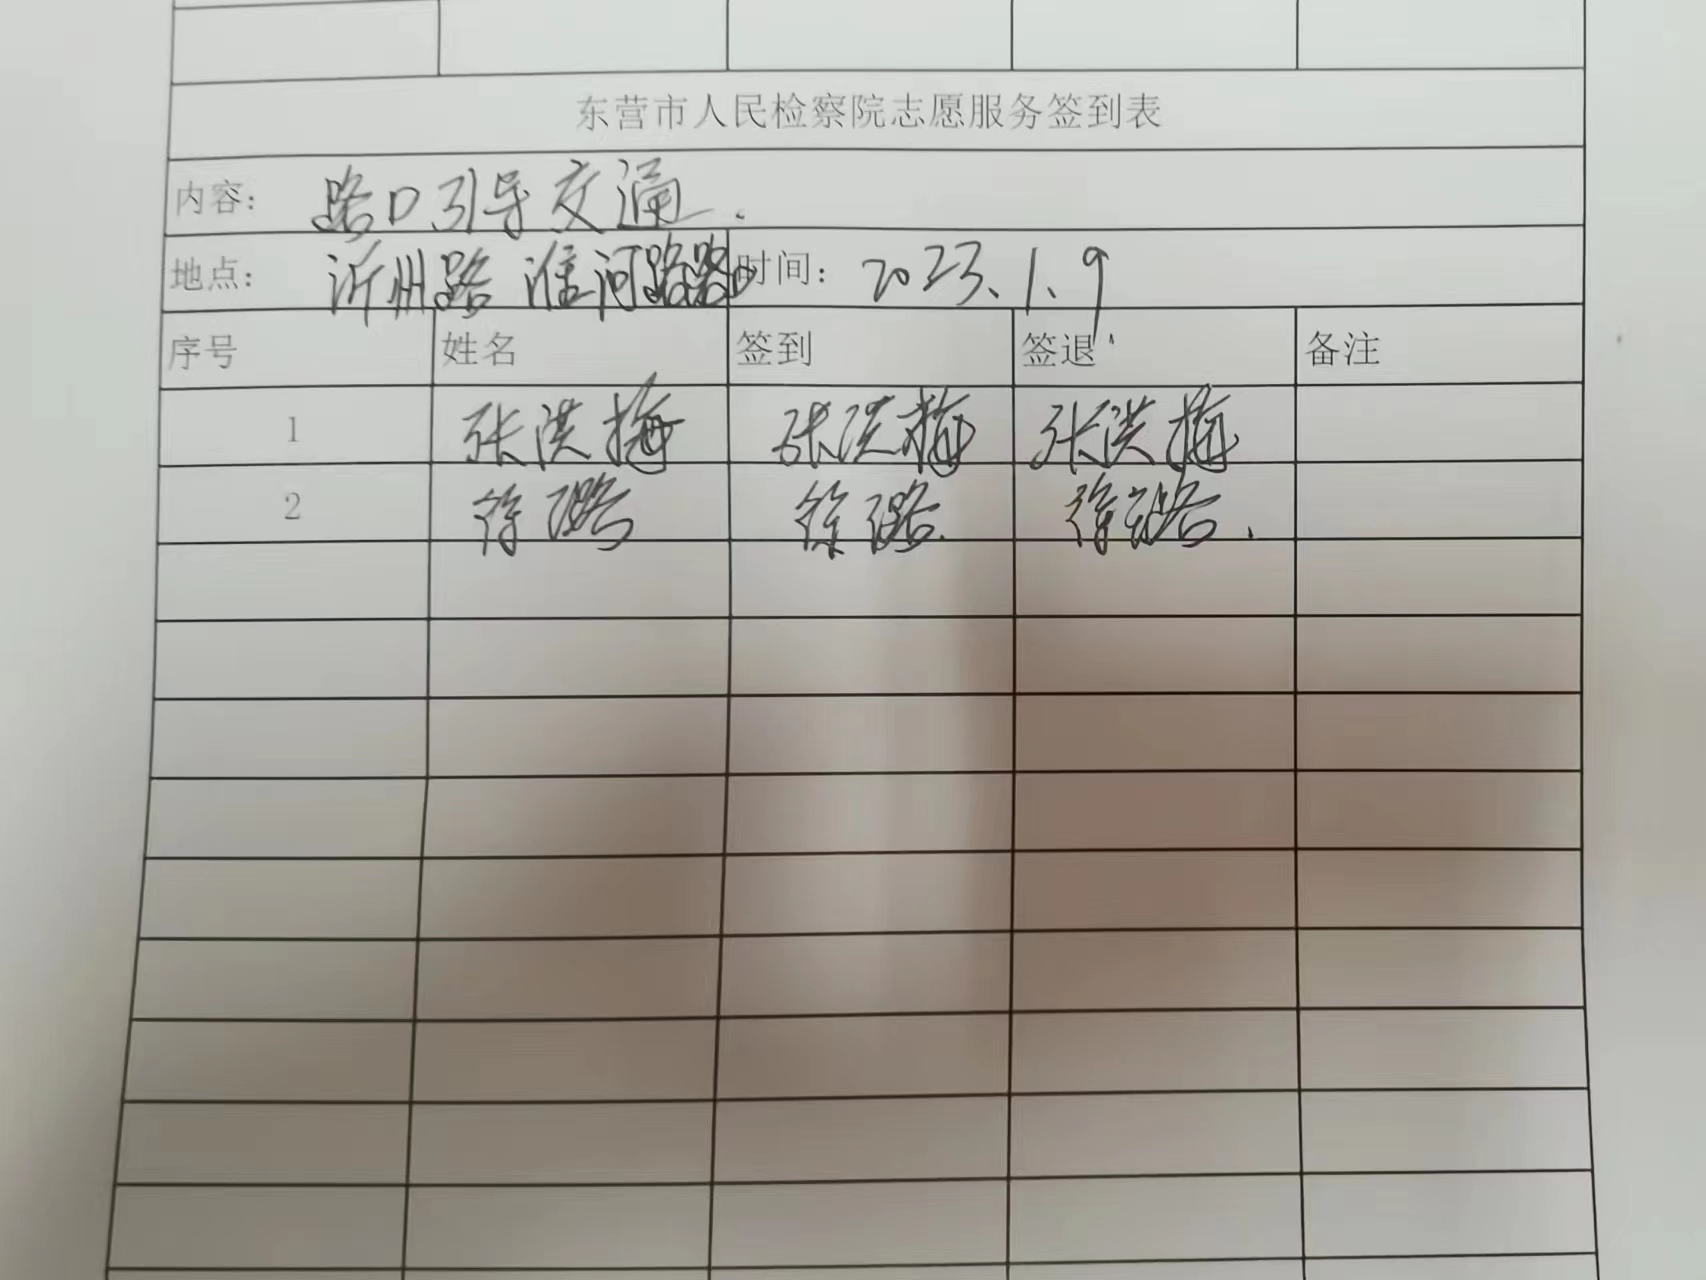 东营市人民检察院志愿服务签到表
内容： 路口引导交通.
地点： 沂州路 淮河路路口 时间： 2023.1.9
序号 姓名 签到 签退 备注
1 张洪梅 张洪梅 张洪梅
2 徐璐 徐璐. 徐璐.